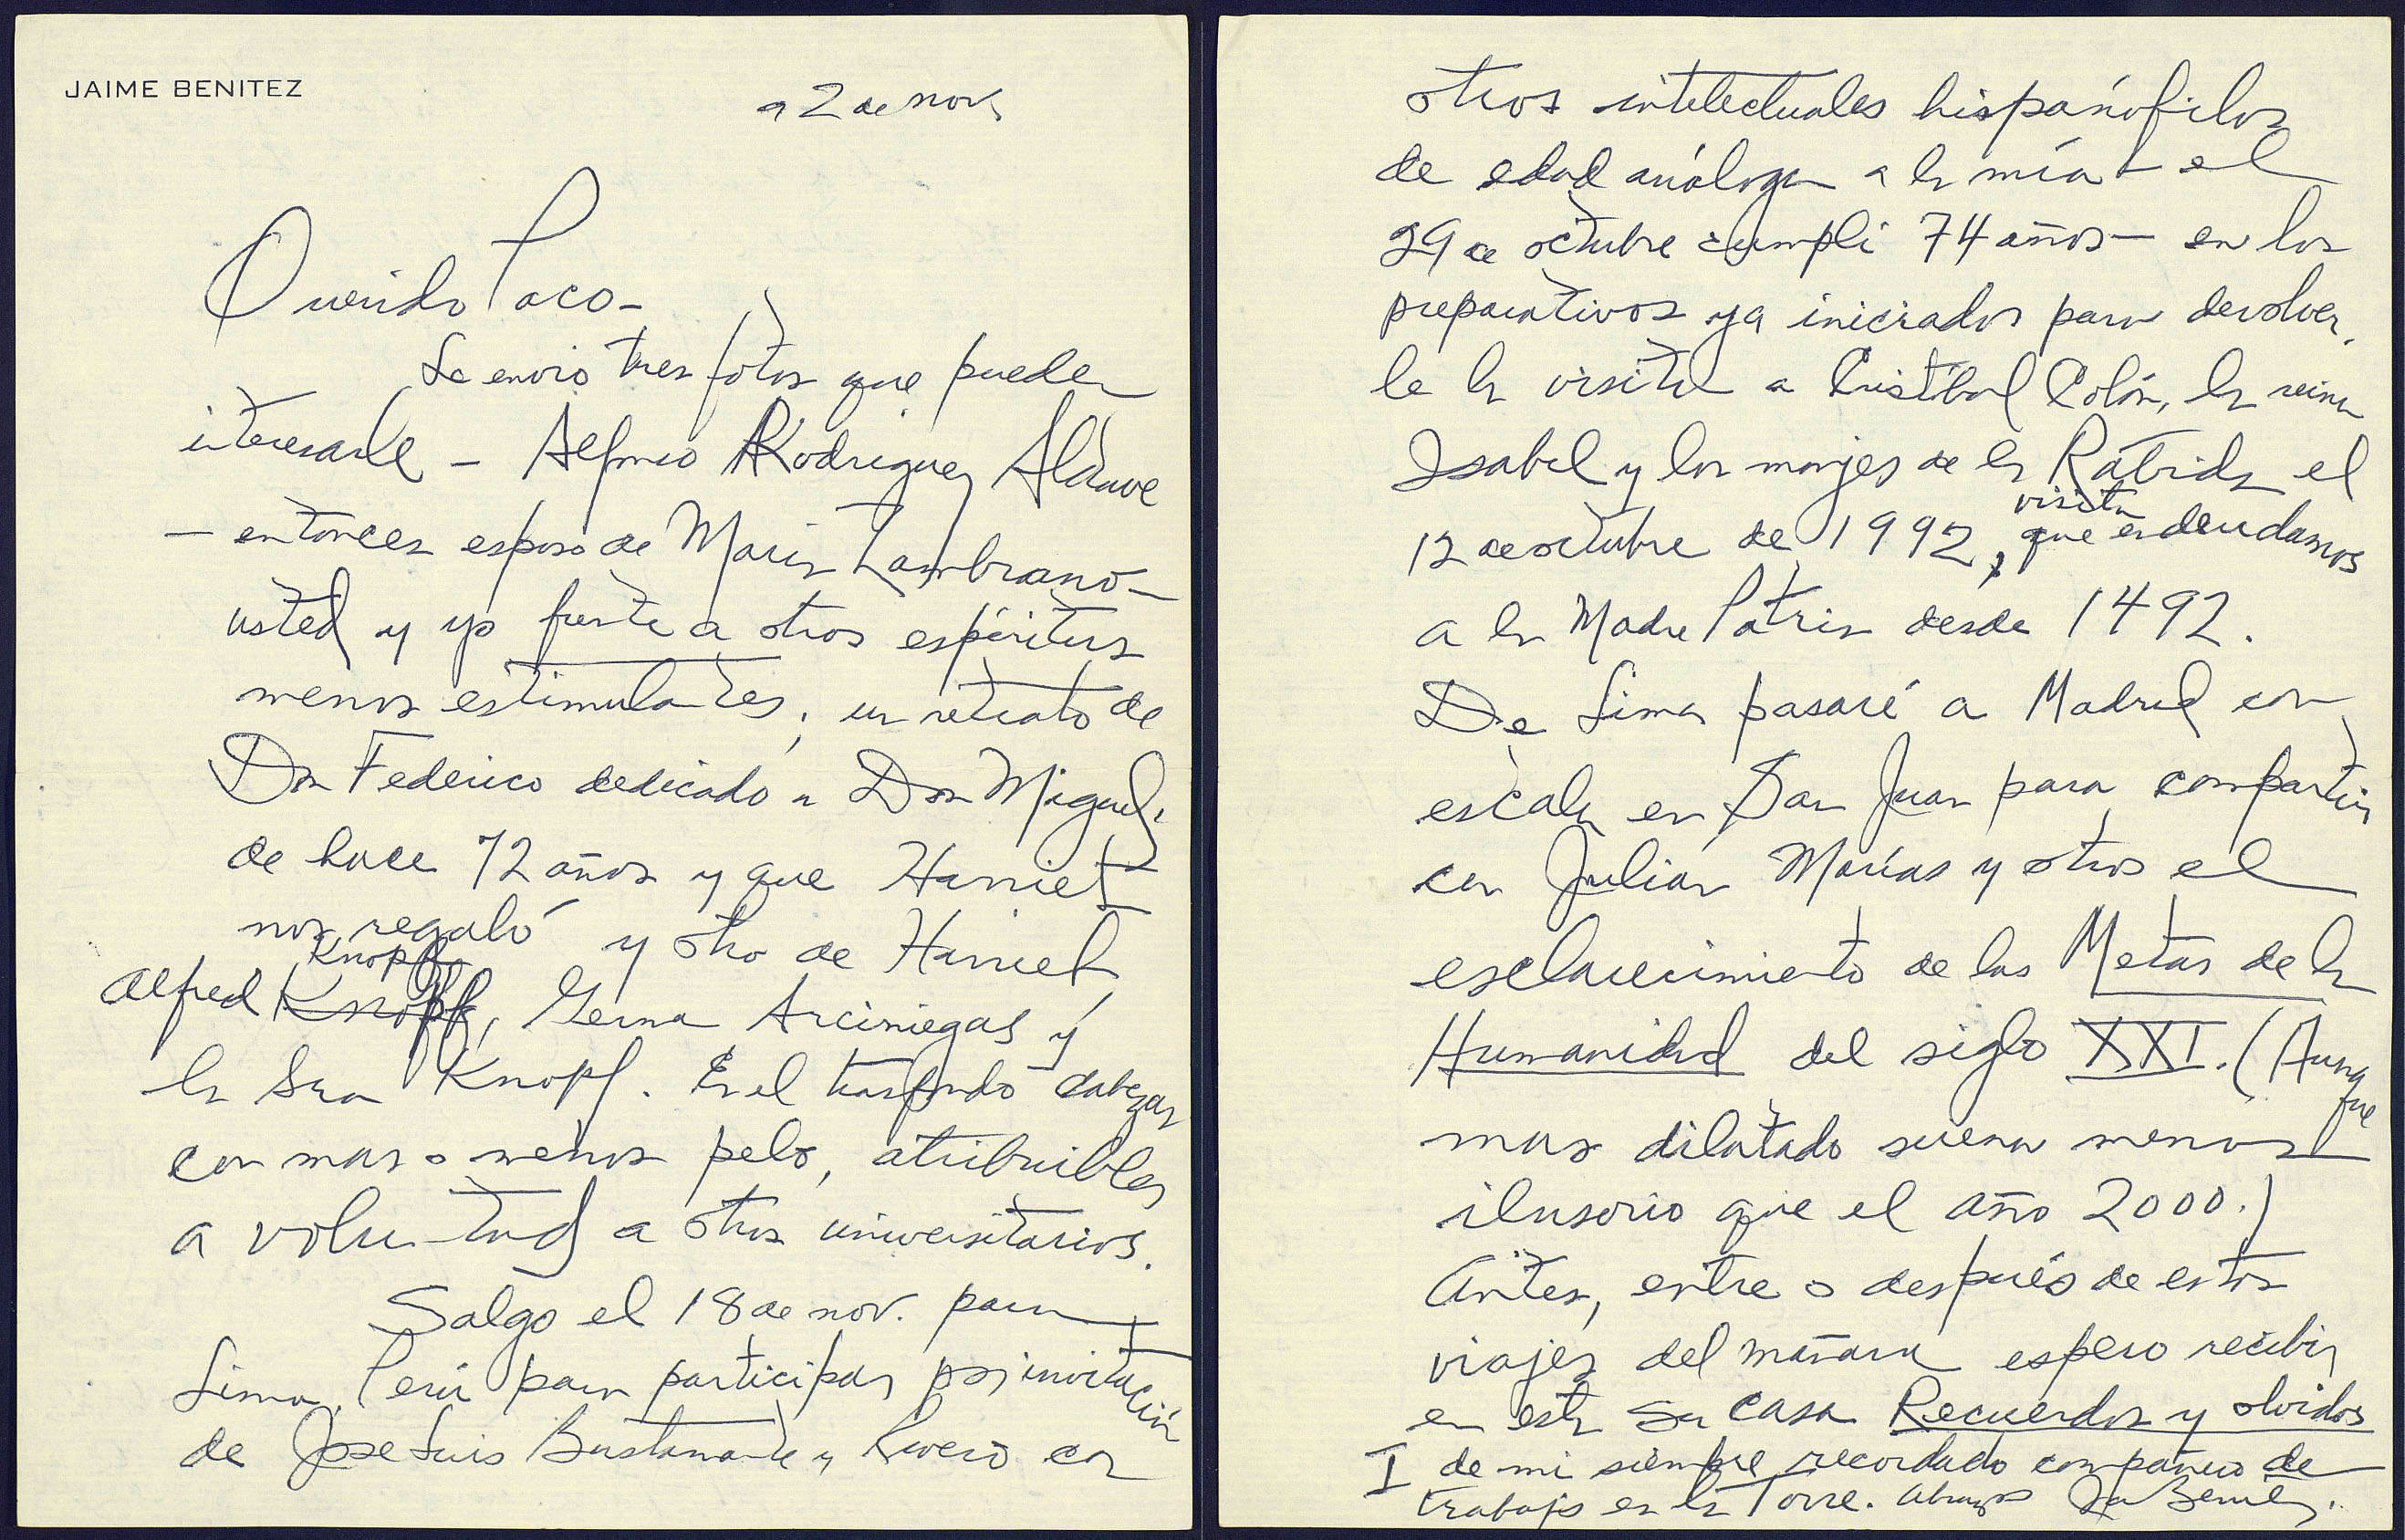 JAIME BENITEZ
a 2 de nov.
Querido Paco –
Le envio tres fotos que pueden
interesarle – Alfonso Rodriguez Aldave
– entonces esposo de Maria Zambrano –
usted y yo frente a otros espíritus
menos estimulantes, un retrato de
Don Federico dedicado a Don Miguel,
de hace 72 años y que Harriet
nos regaló y otro de Harriet
Alfred Knopf, Germa Arciniegas y
la Sra Knopf. En el trasfondo cabezas
con mas o menos pelo, atribuibles
a voluntad a otros universitarios.
Salgo el 18 de nov. para
Lima, Perú para participar por invitación
de Jose Luis Bustamante y Rivero con
otros intelectuales hispanófilos
de edad análoga a la mía – el
29 de octubre cumplí 74 años – en los
preparativos ya iniciados para devolver-
le la visita a Cristóbal Colón, la reina
Isabel y los monjes de la Rábida el
12 de octubre de 1992, visita que adeudamos
a la Madre Patria desde 1492.
De Lima pasaré a Madrid con
escala en San Juan para compartir
con Julián Marías y otros el
esclarecimiento de las Metas de la
Humanidad del siglo XXI. (Aunque
mas dilatado suena menos
ilusorio que el año 2000.)
Antes, entre o después de estos
viajes del mañana espero recibir
en esta su casa Recuerdos y olvidos
I de mi siempre recordado compañero de
trabajo en la Torre. Abrazos Benítez.